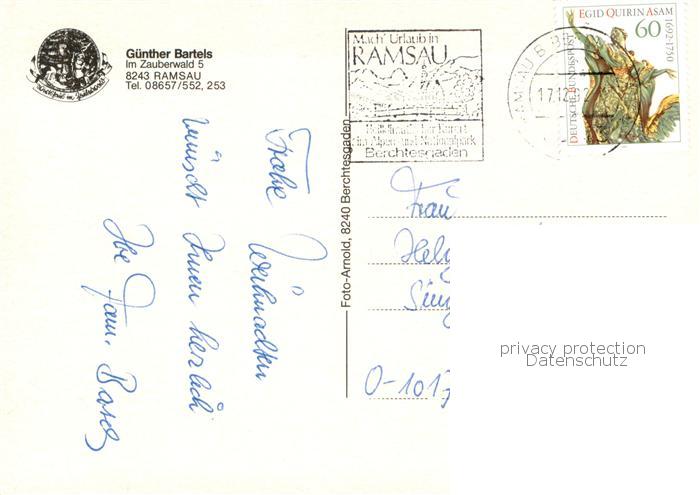 Günther Bartels
Im Zauberwald 5
8243 RAMSAU
Tel. 08657/552, 253
Mach' Urlaub in
RAMSAU
im Alpen- und Nationalpark
Berchtesgaden
RAMSAU B B
17.12.
EGID QUIRIN ASAM
1692-1750
60
DEUTSCHE BUNDESPOST
Frohe Weihnachten
wünscht Ihnen herzlich
Ihre Fam. Bartels
Foto-Arnold, 8240 Berchtesgaden
Frau
O-101
privacy protection
Datenschutz